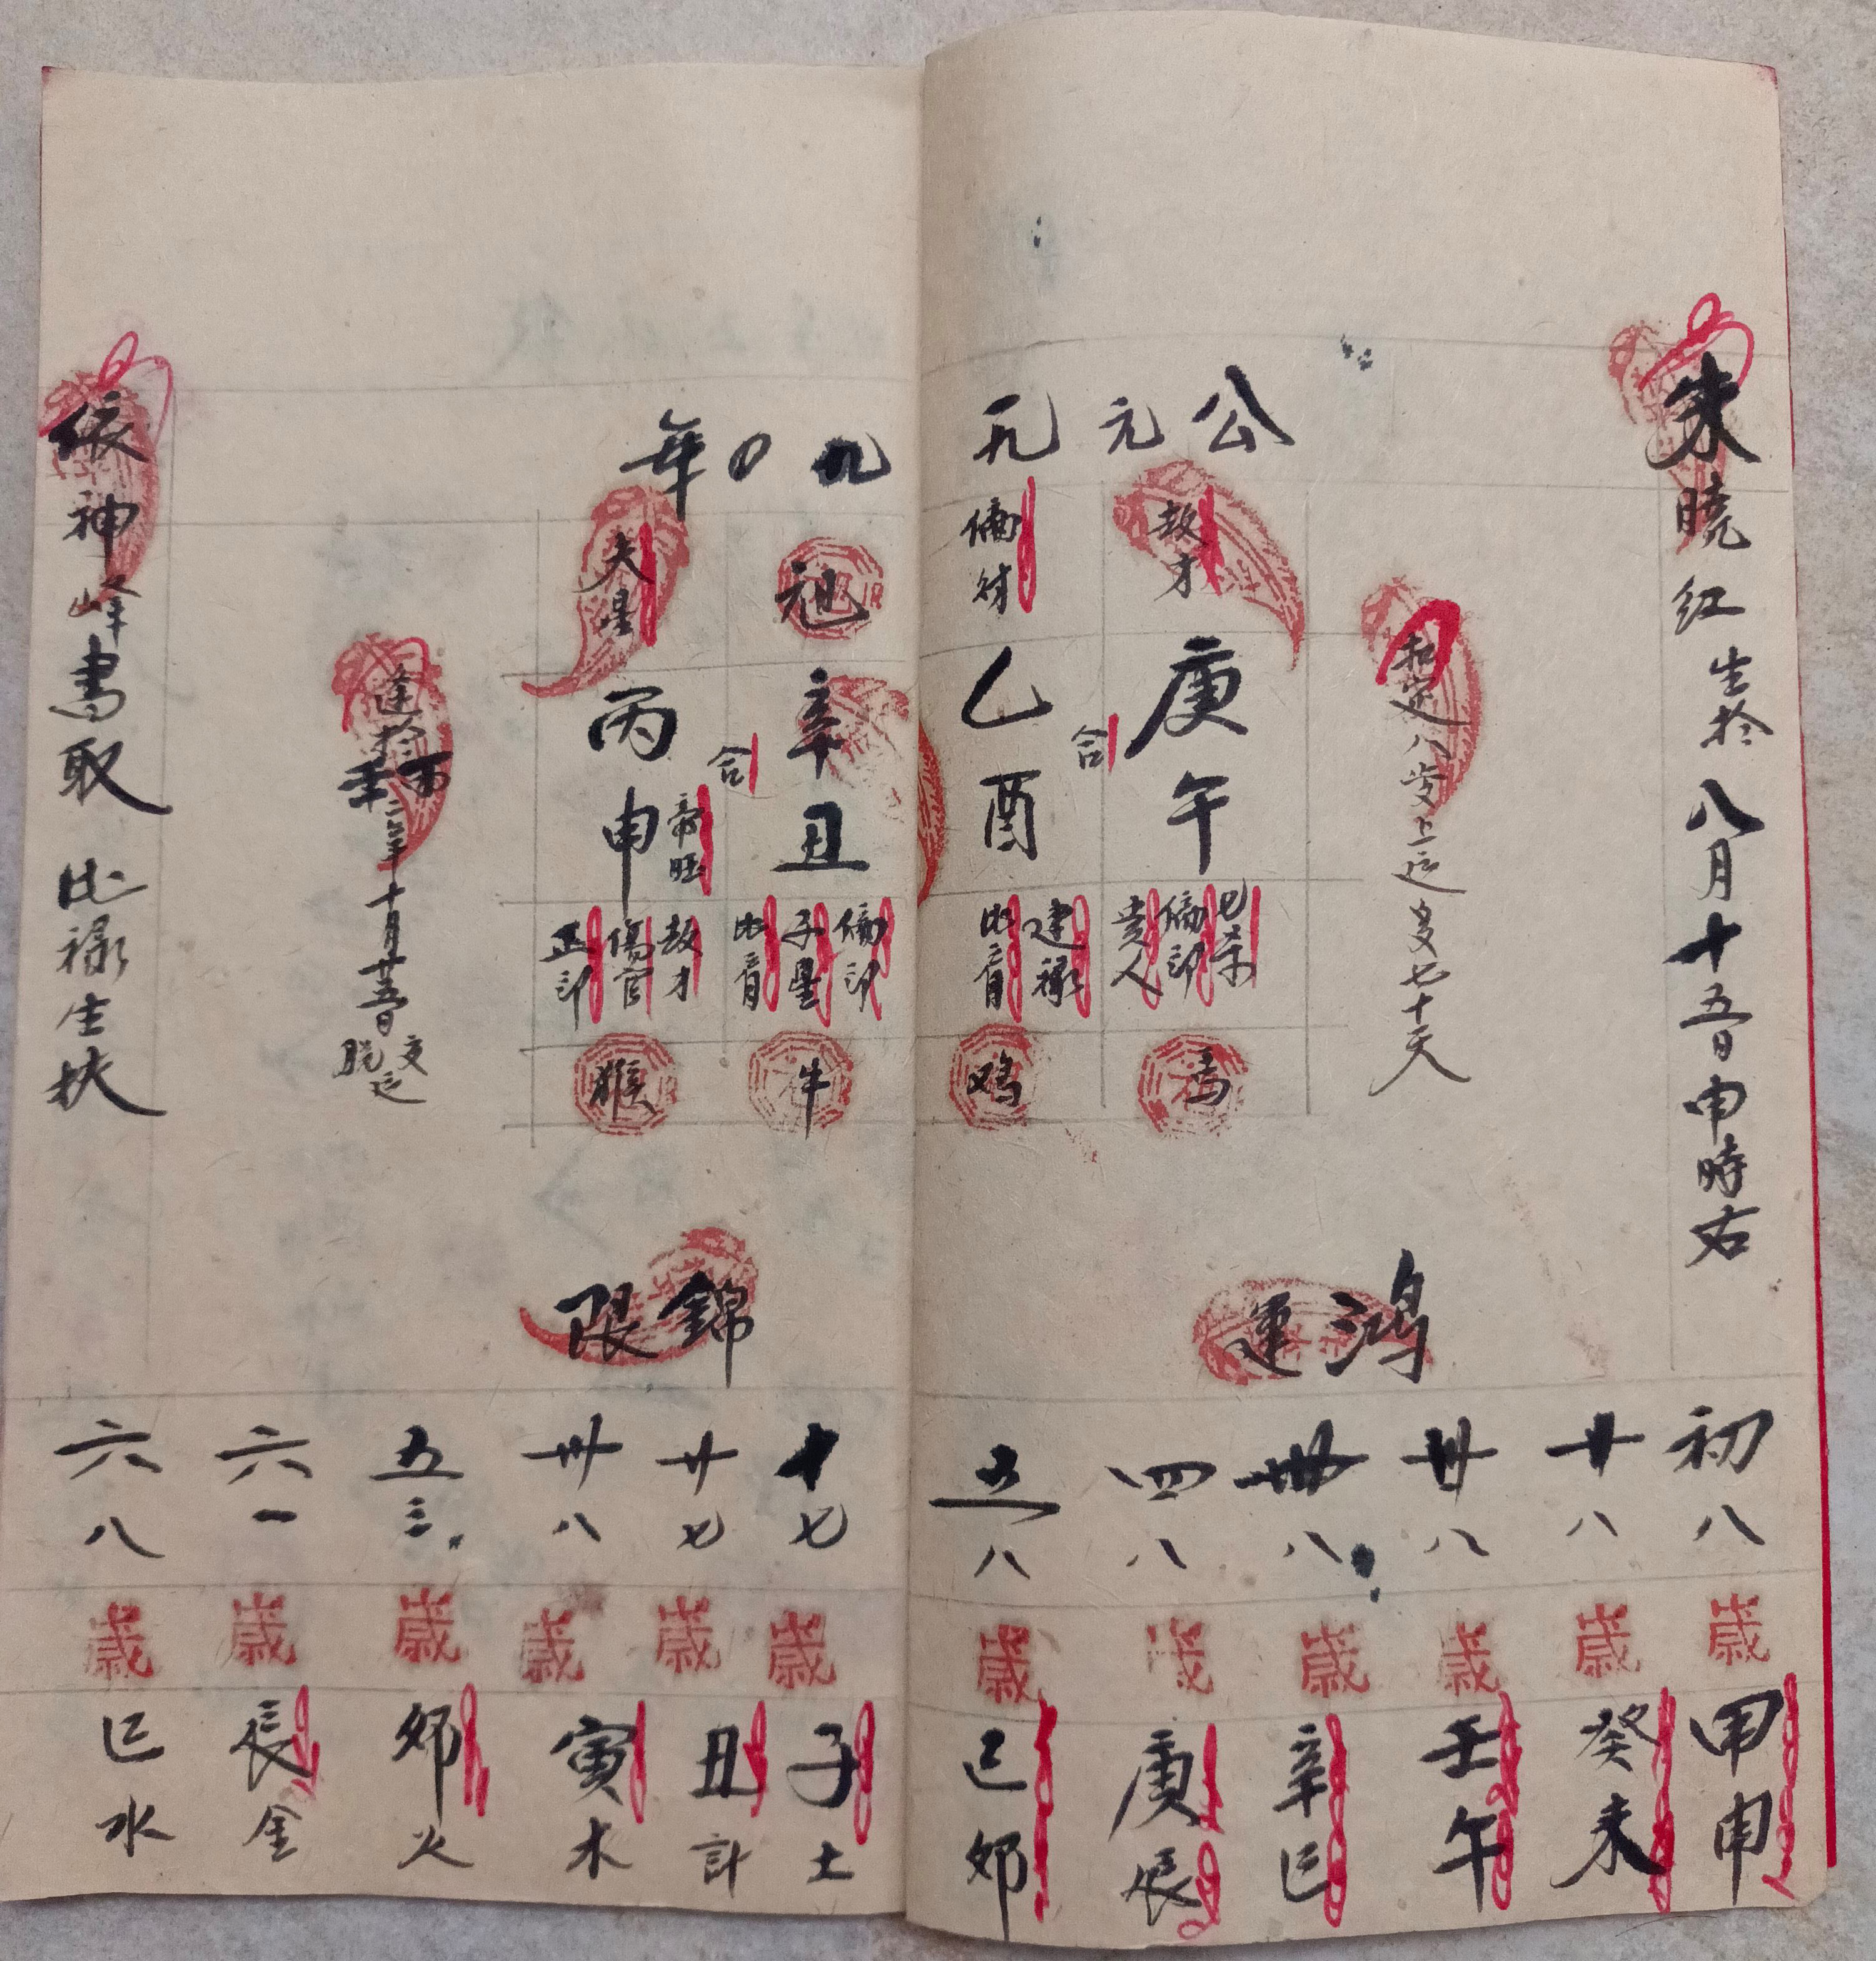 朱曉红生於八月十五日申時右
扣定八歲上运多七十天
公元一九九〇年
敖才
庚午
合
巳未
偏印
貴人
馬
偏财
乙酉
建禄
比肩
鸡
辛丑
合
偏印
子星
比肩
牛
夫星
丙申
帝旺
敖才
傷官
正印
猴
逢於
丙
辛
二年十月廿五日
交
脱运
依神峰書取比禄生扶
鴻運
初八歲甲申
廿八歲癸未
卅八歲壬午
卌八歲辛巳
四八歲庚辰
五八歲己卯
錦限
十七歲子土
廿七歲丑計
卅八歲寅木
五三歲卯火
六一歲辰金
六八歲巳水